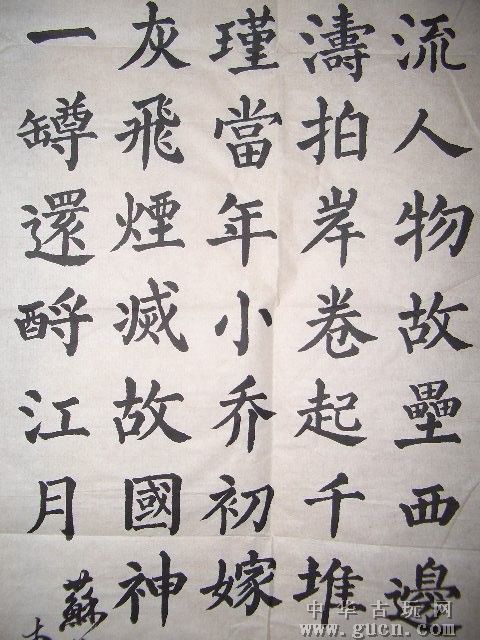 流人物故壘西邊
濤拍岸卷起千堆
瑾當年小乔初嫁
灰飛煙滅故國神
一罇還酹江月
蘇
中华古玩网
www.gucn.com